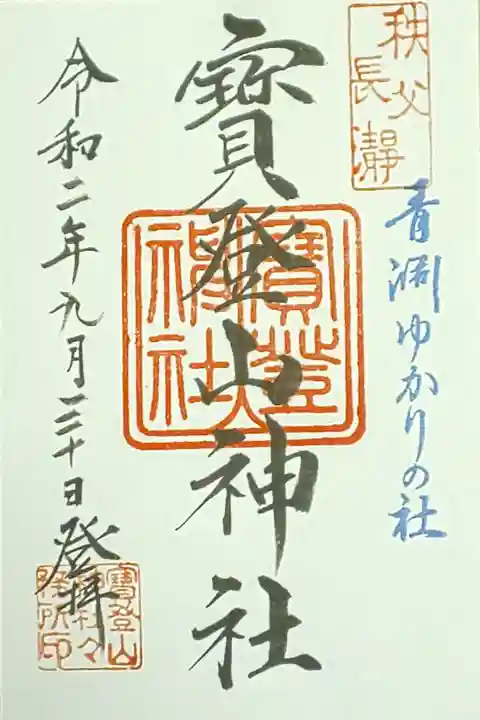 秩父
長瀞
青淵ゆかりの社
寳登山神社
寳登山
神社
令和二年九月三十日
登拝
寳登山
神社々
務所印